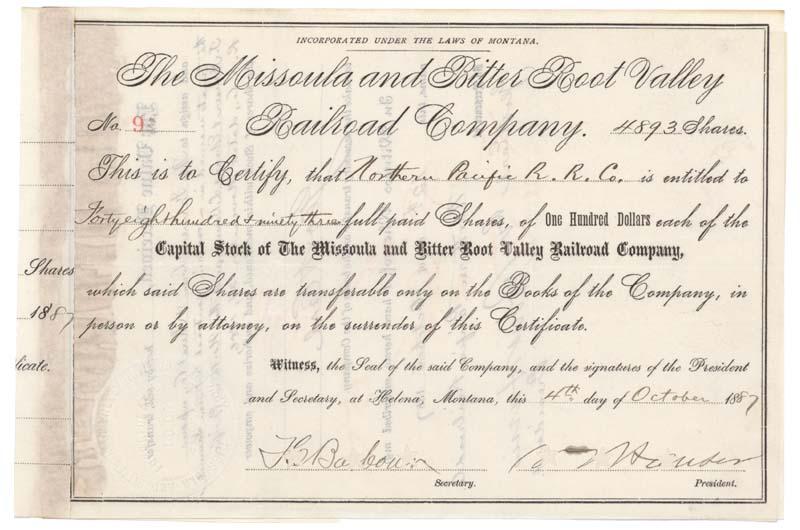 INCORPORATED UNDER THE LAWS OF MONTANA.
The Missoula and Bitter Root Valley
No. 9 Railroad Company. 4893 Shares.
This is to Certify, that Northern Pacific R. R. Co. is entitled to
Forty eight hundred & ninety three full paid Shares, of One Hundred Dollars each of the
Capital Stock of The Missoula and Bitter Root Valley Railroad Company,
which said Shares are transferable only on the Books of the Company, in
person or by attorney, on the surrender of this Certificate.
Witness, the Seal of the said Company, and the signatures of the President
and Secretary, at Helena, Montana, this 4th day of October 1887
Secretary. President.
Shares
1887
ficate.